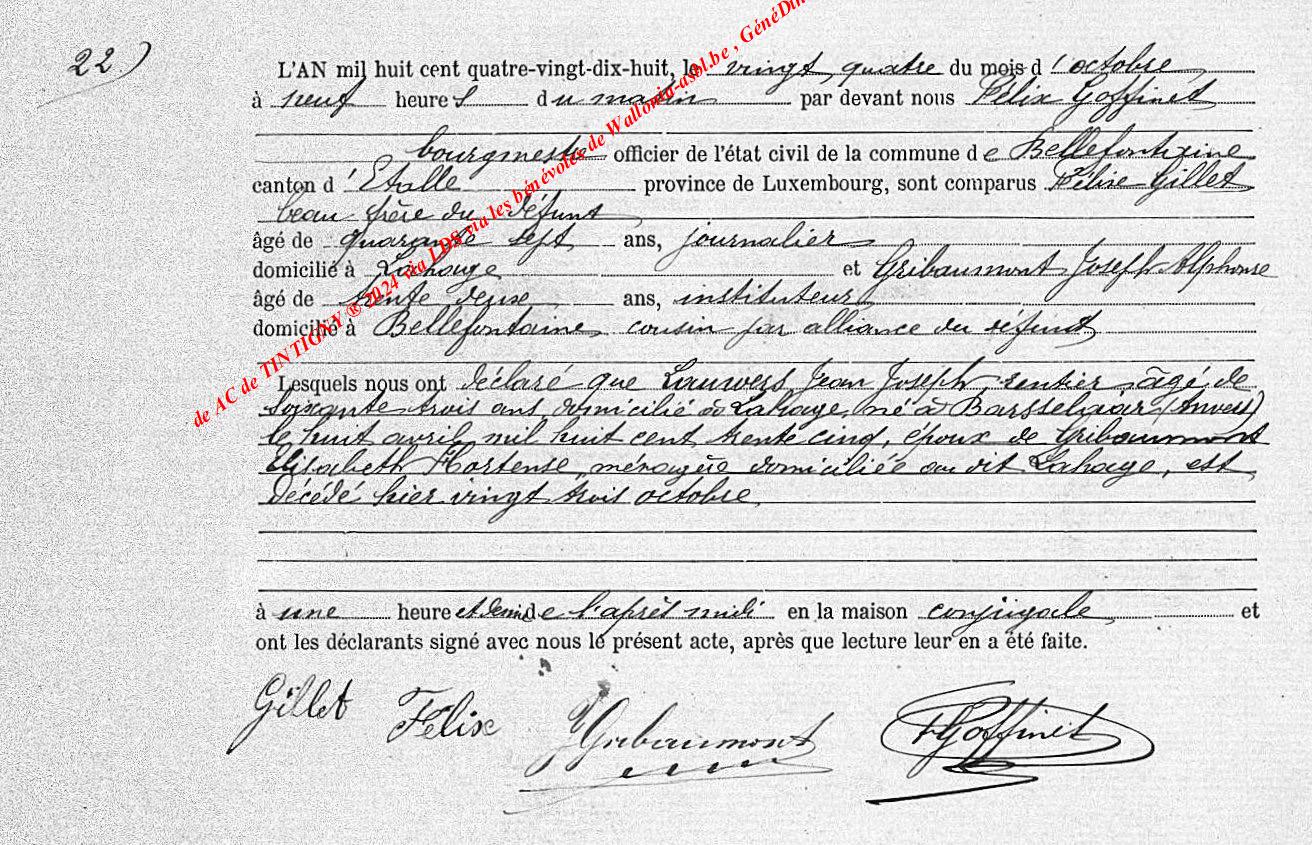 22)
L'AN mil huit cent quatre-vingt-dix-huit, le vingt quatre du mois d'octobre
à neuf heures du matin par devant nous Félix Goffinet
bourgmestre officier de l'état civil de la commune de Bellefontaine
canton d'Etalle province de Luxembourg, sont comparus Félix Gillet
beau-frère du défunt
âgé de quarante sept ans, journalier
domicilié à Lahage et Gribaumont Joseph-Alphonse
âgé de trente deux ans, instituteur
domicilié à Bellefontaine cousin par alliance du défunt
Lesquels nous ont déclaré que Lauwers Jean Joseph, rentier âgé de
soixante trois ans, domicilié à Lahage, né à (Anvers)
le huit avril mil huit cent trente cinq, époux de Gribaumont
Elisabeth Hortense, ménagère domiciliée au dit Lahage, est
décédé hier vingt trois octobre
à une heure et demi de l'après midi en la maison conjugale et
ont les déclarants signé avec nous le présent acte, après que lecture leur en a été faite.
Gillet Félix JGribaumont FGoffinet
de AC de TINTIGNY ® 2024 via LDS via les bénévoles de Wallonia-asbl.be , GénéDin